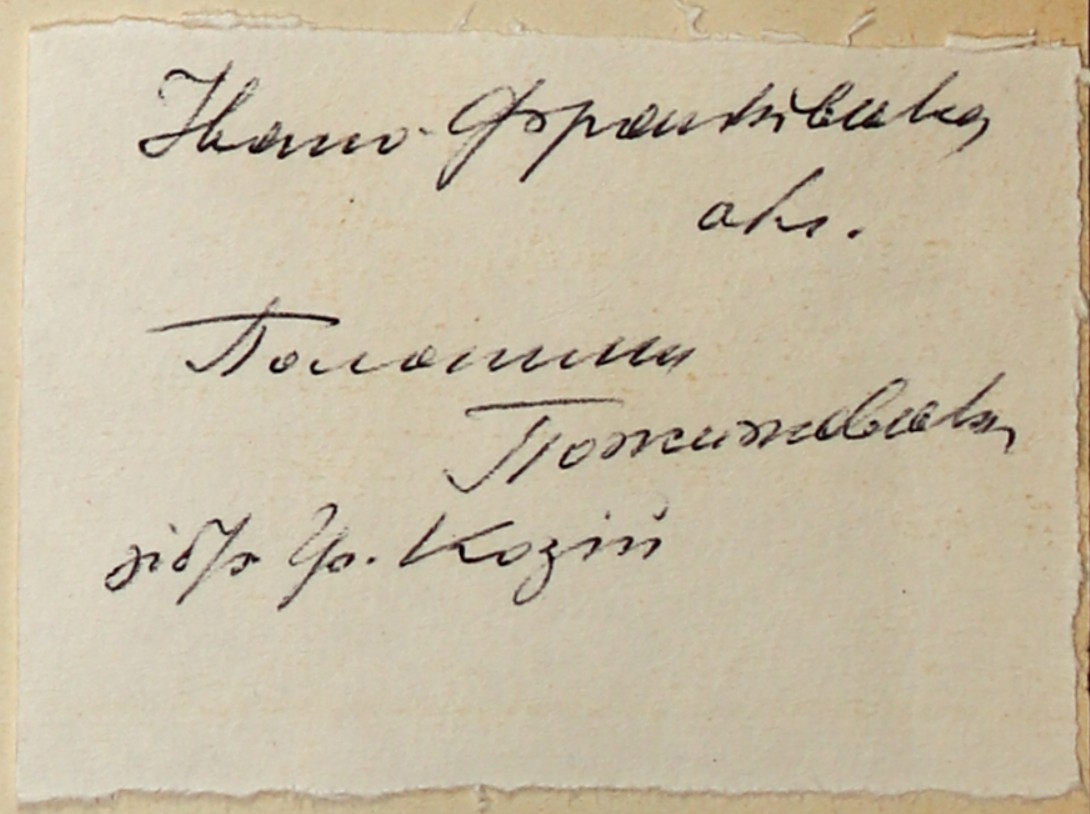 Івано-Франківська
обл.
Полонина
Пожижевська
зібр Гр. Козій